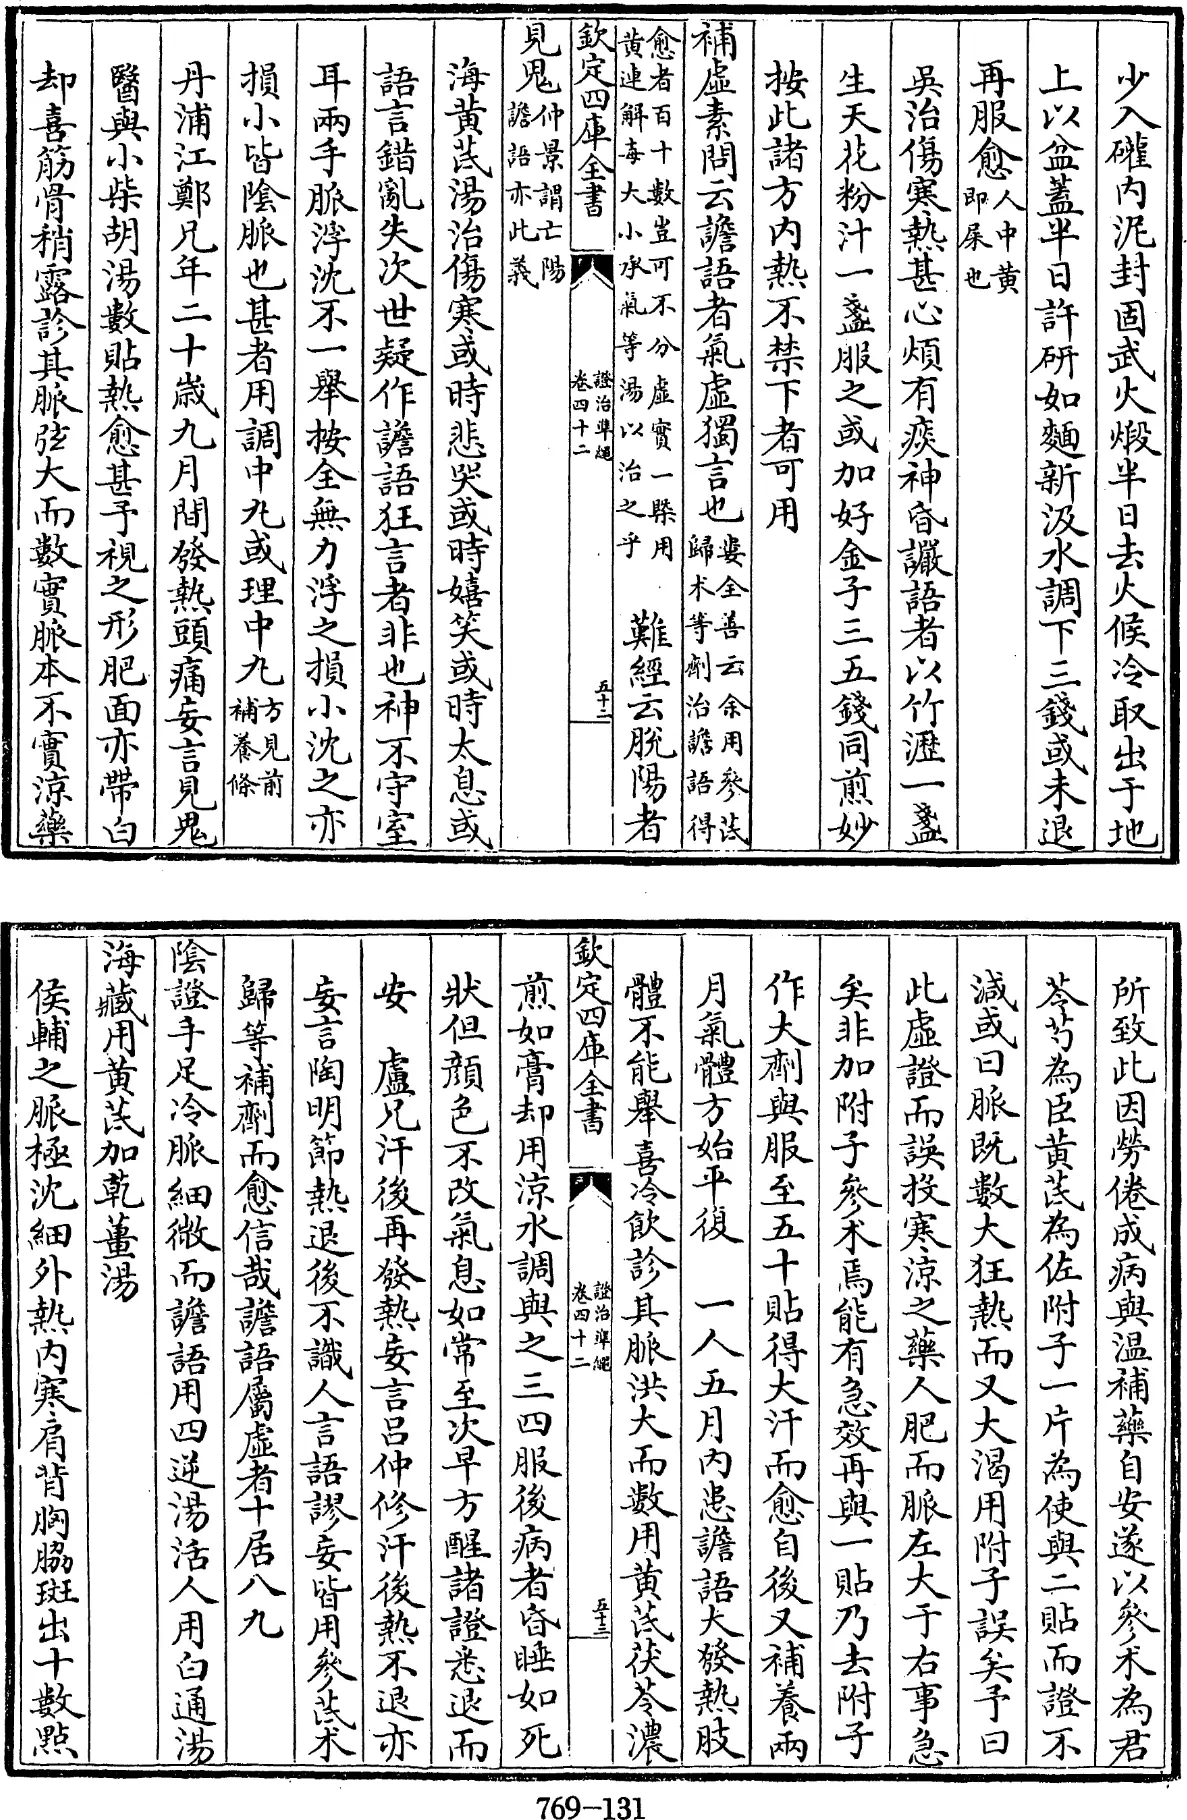 少入礶内泥封固武火煅半日去火候冷取出于地
上以盆蓋半日許研如麵新汲水調下三錢或未退
再服愈人中黄即屎也
吳治傷寒熱甚心煩有痰神昏讝語者以竹瀝一盞
生天花粉汁一盞服之或加好金子三五錢同煎妙
按此諸方内熱不禁下者可用
補虛素問云譫語者氣虛獨言也婁全善云余用參芪歸术等劑治譫語得
愈者百十數豈可不分虛實一槩用黄連解毒大小承氣等湯以治之乎　難經云脱陽者
欽定四庫全書　證治準繩卷四十二　五十二
見鬼仲景謂亡陽譫語亦此義
海黄芪湯治傷寒或時悲哭或時嬉笑或時太息或
語言錯亂失次世疑作譫語狂言者非也神不守室
耳兩手脈浮沈不一舉按全無力浮之損小沈之亦
損小皆陰脈也甚者用調中丸或理中丸方見前補養條
丹浦江鄭兄年二十歲九月間發熱頭痛妄言見鬼
醫與小柴胡湯數貼熱愈甚予視之形肥面亦帶白
却喜筋骨稍露診其脈弦大而數實脈本不實涼藥
所致此因勞倦成病與温補藥自安遂以參术為君
苓芍為臣黄芪為佐附子一片為使與二貼而證不
減或曰脈既數大狂熱而又大渴用附子誤矣予曰
此虛證而誤投寒涼之藥人肥而脈左大于右事急
矣非加附子參术焉能有急效再與一貼乃去附子
作大劑與服至五十貼得大汗而愈自後又補養兩
月氣體方始平復　一人五月内患譫語大發熱肢
體不能舉喜冷飲診其脈洪大而數用黄芪茯苓濃
欽定四庫全書　證治準繩卷四十二　五十三
煎如膏却用涼水調與之三四服後病者昏睡如死
狀但顔色不改氣息如常至次早方醒諸證悉退而
安　盧兄汗後再發熱妄言吕仲修汗後熱不退亦
妄言陶明節熱退後不識人言語謬妄皆用參芪术
歸等補劑而愈信哉譫語屬虛者十居八九
陰證手足冷脈細微而譫語用四逆湯活人用白通湯
海藏用黄芪加乾薑湯
侯輔之脈極沈細外熱内寒肩背胸脇斑出十數點
769-131